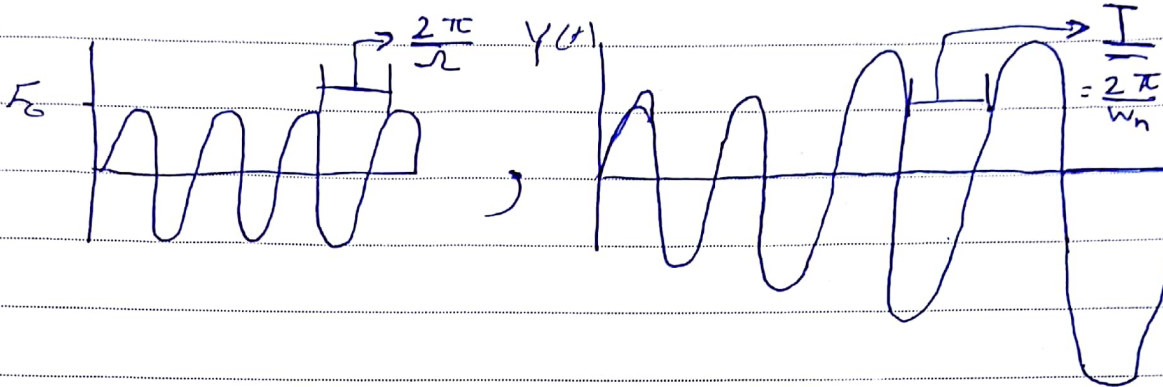 F₀
2π/Ω
Y(t)
T
= 2π/Wn
,